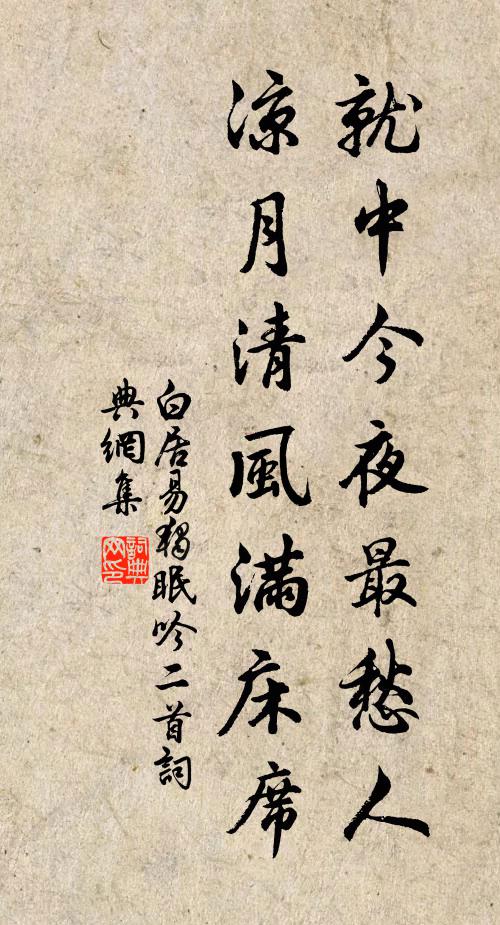 就中今夜最愁人
凉月清風滿床席
白居易獨眠吟二首詞
典網集
詞典
网印